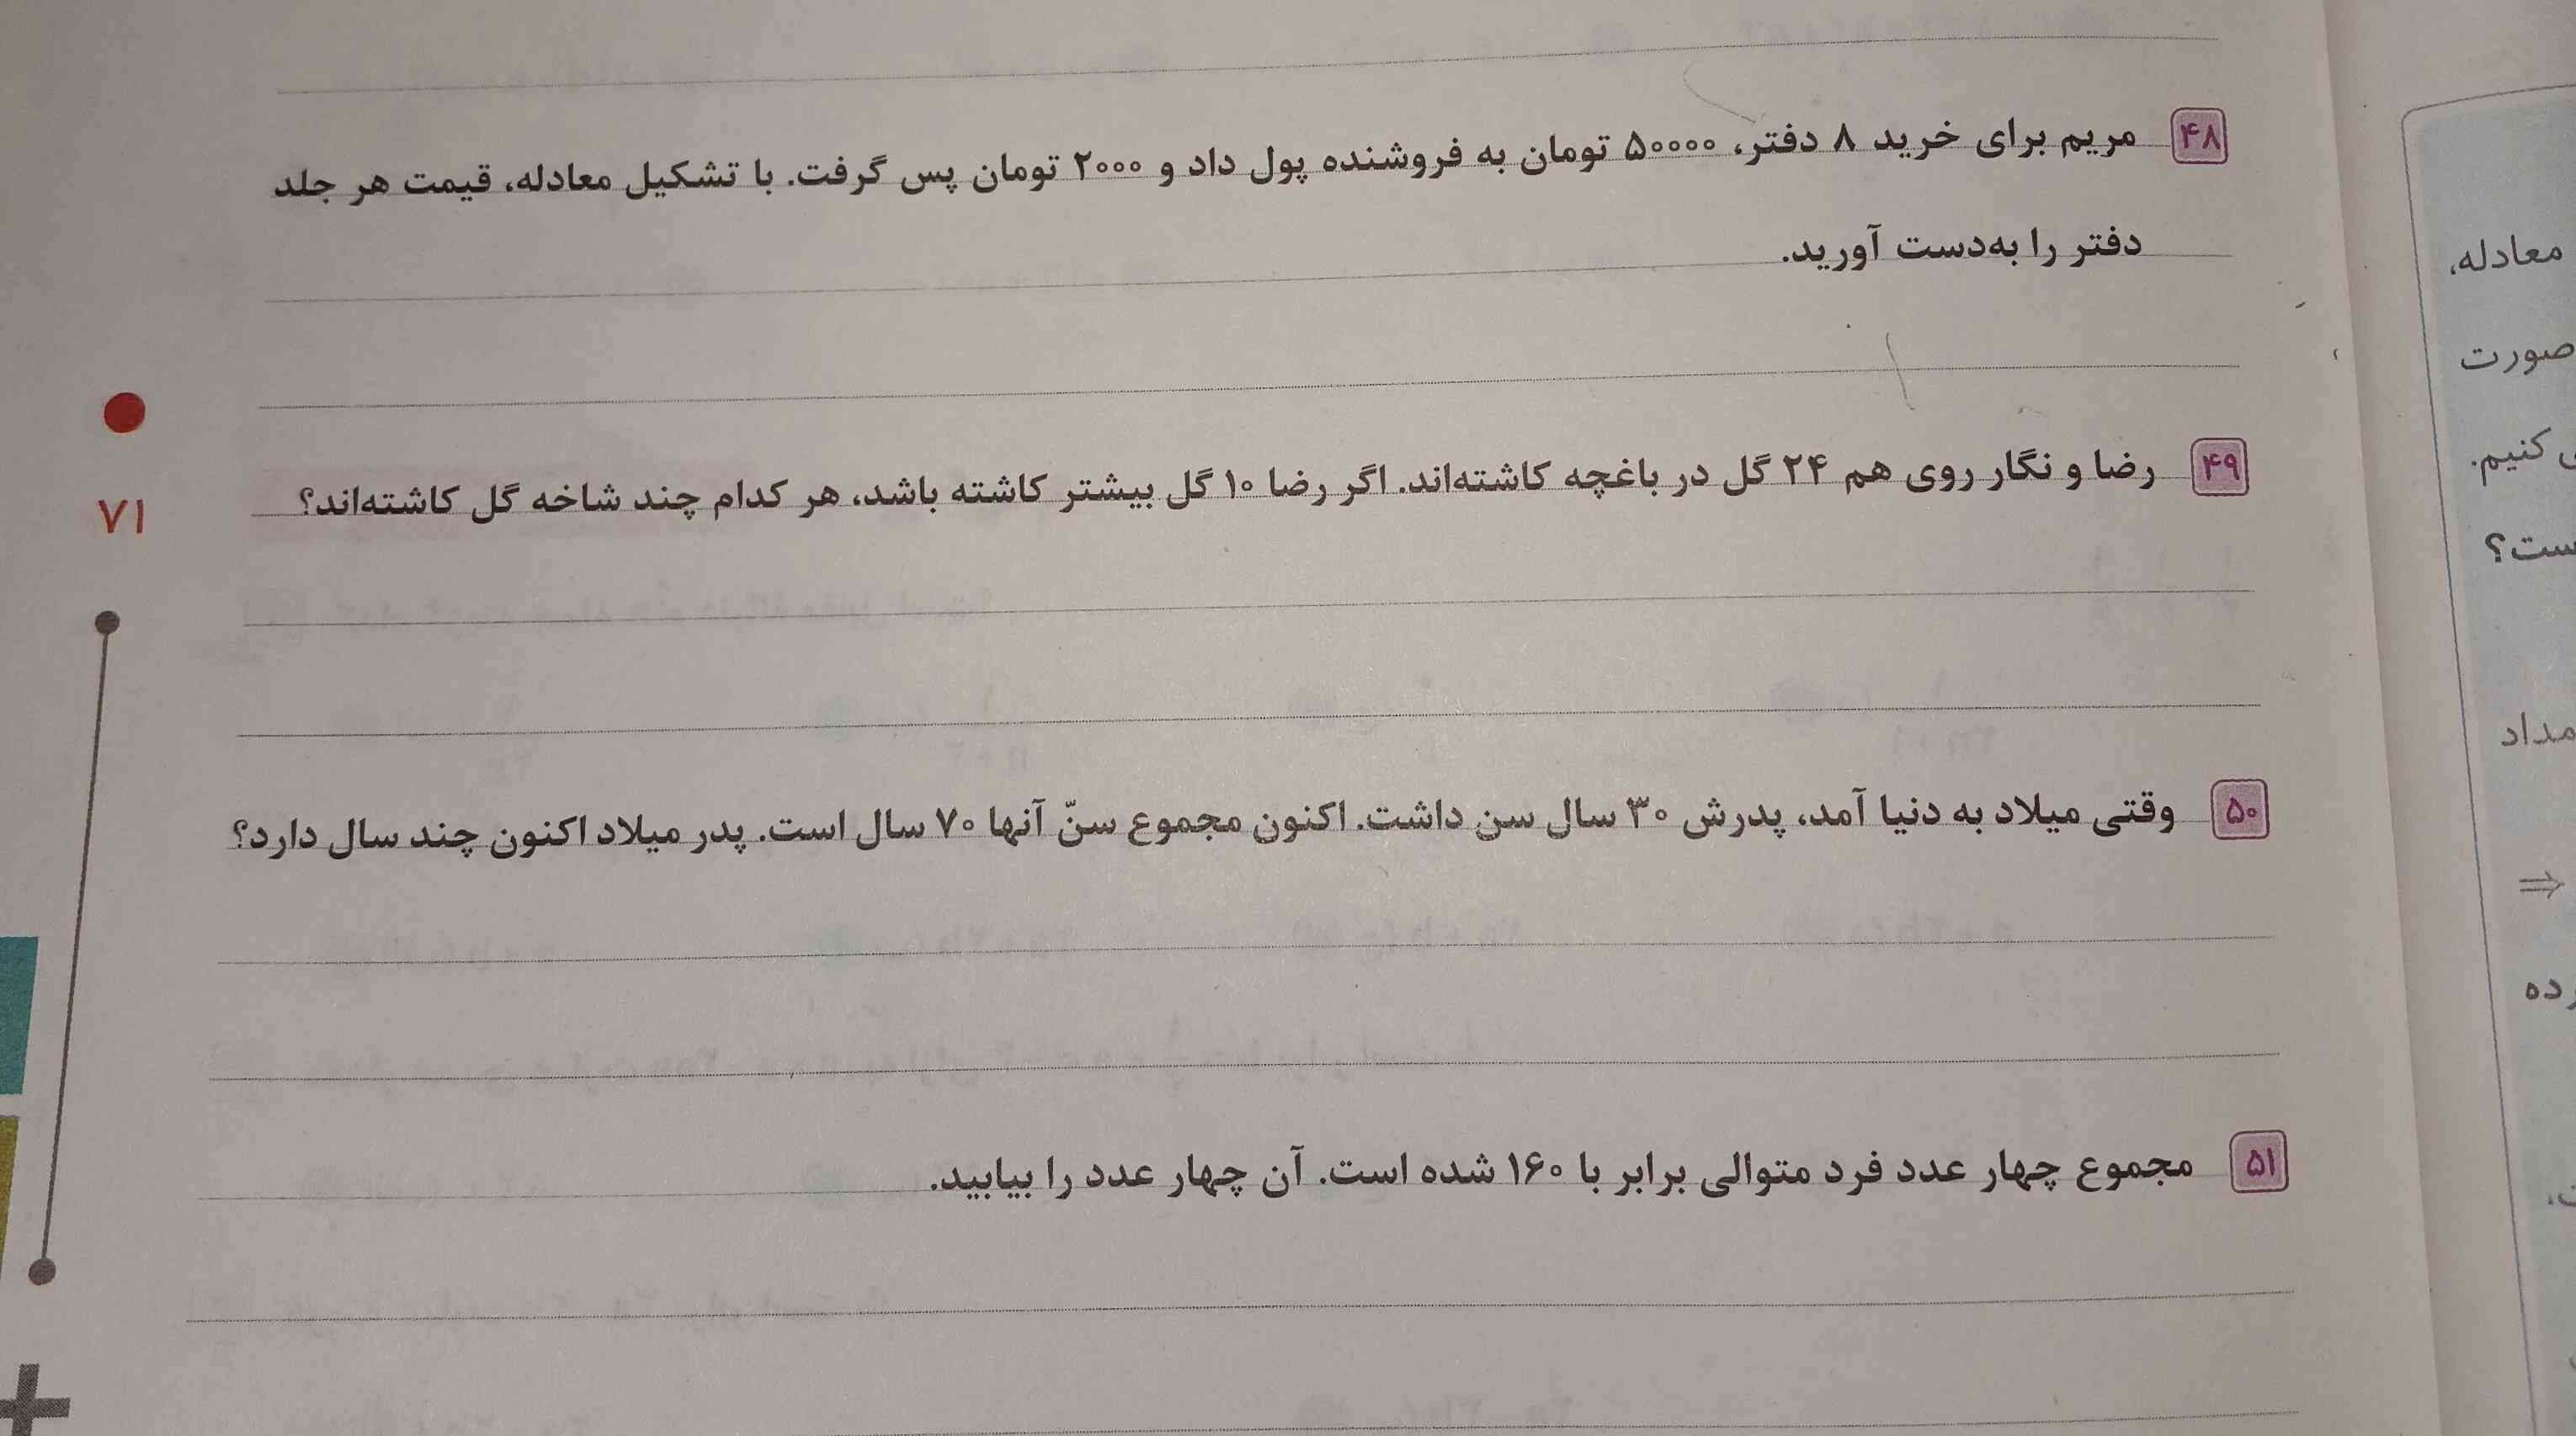 ۴۸ مریم برای خرید ۸ دفتر، ۵۰۰۰۰ تومان به فروشنده پول داد و ۲۰۰۰ تومان پس گرفت. با تشکیل معادله، قیمت هر جلد
دفتر را به‌دست آورید.
۴۹ رضا و نگار روی هم ۲۴ گل در باغچه کاشته‌اند. اگر رضا ۱۰ گل بیشتر کاشته باشد، هر کدام چند شاخه گل کاشته‌اند؟
۷۱
۵۰ وقتی میلاد به دنیا آمد، پدرش ۳۰ سال سن داشت. اکنون مجموع سنّ آنها ۷۰ سال است. پدر میلاد اکنون چند سال دارد؟
۵۱ مجموع چهار عدد فرد متوالی برابر با ۱۶۰ شده است. آن چهار عدد را بیابید.
معادله،
صورت
کنیم.
مداد
⇒